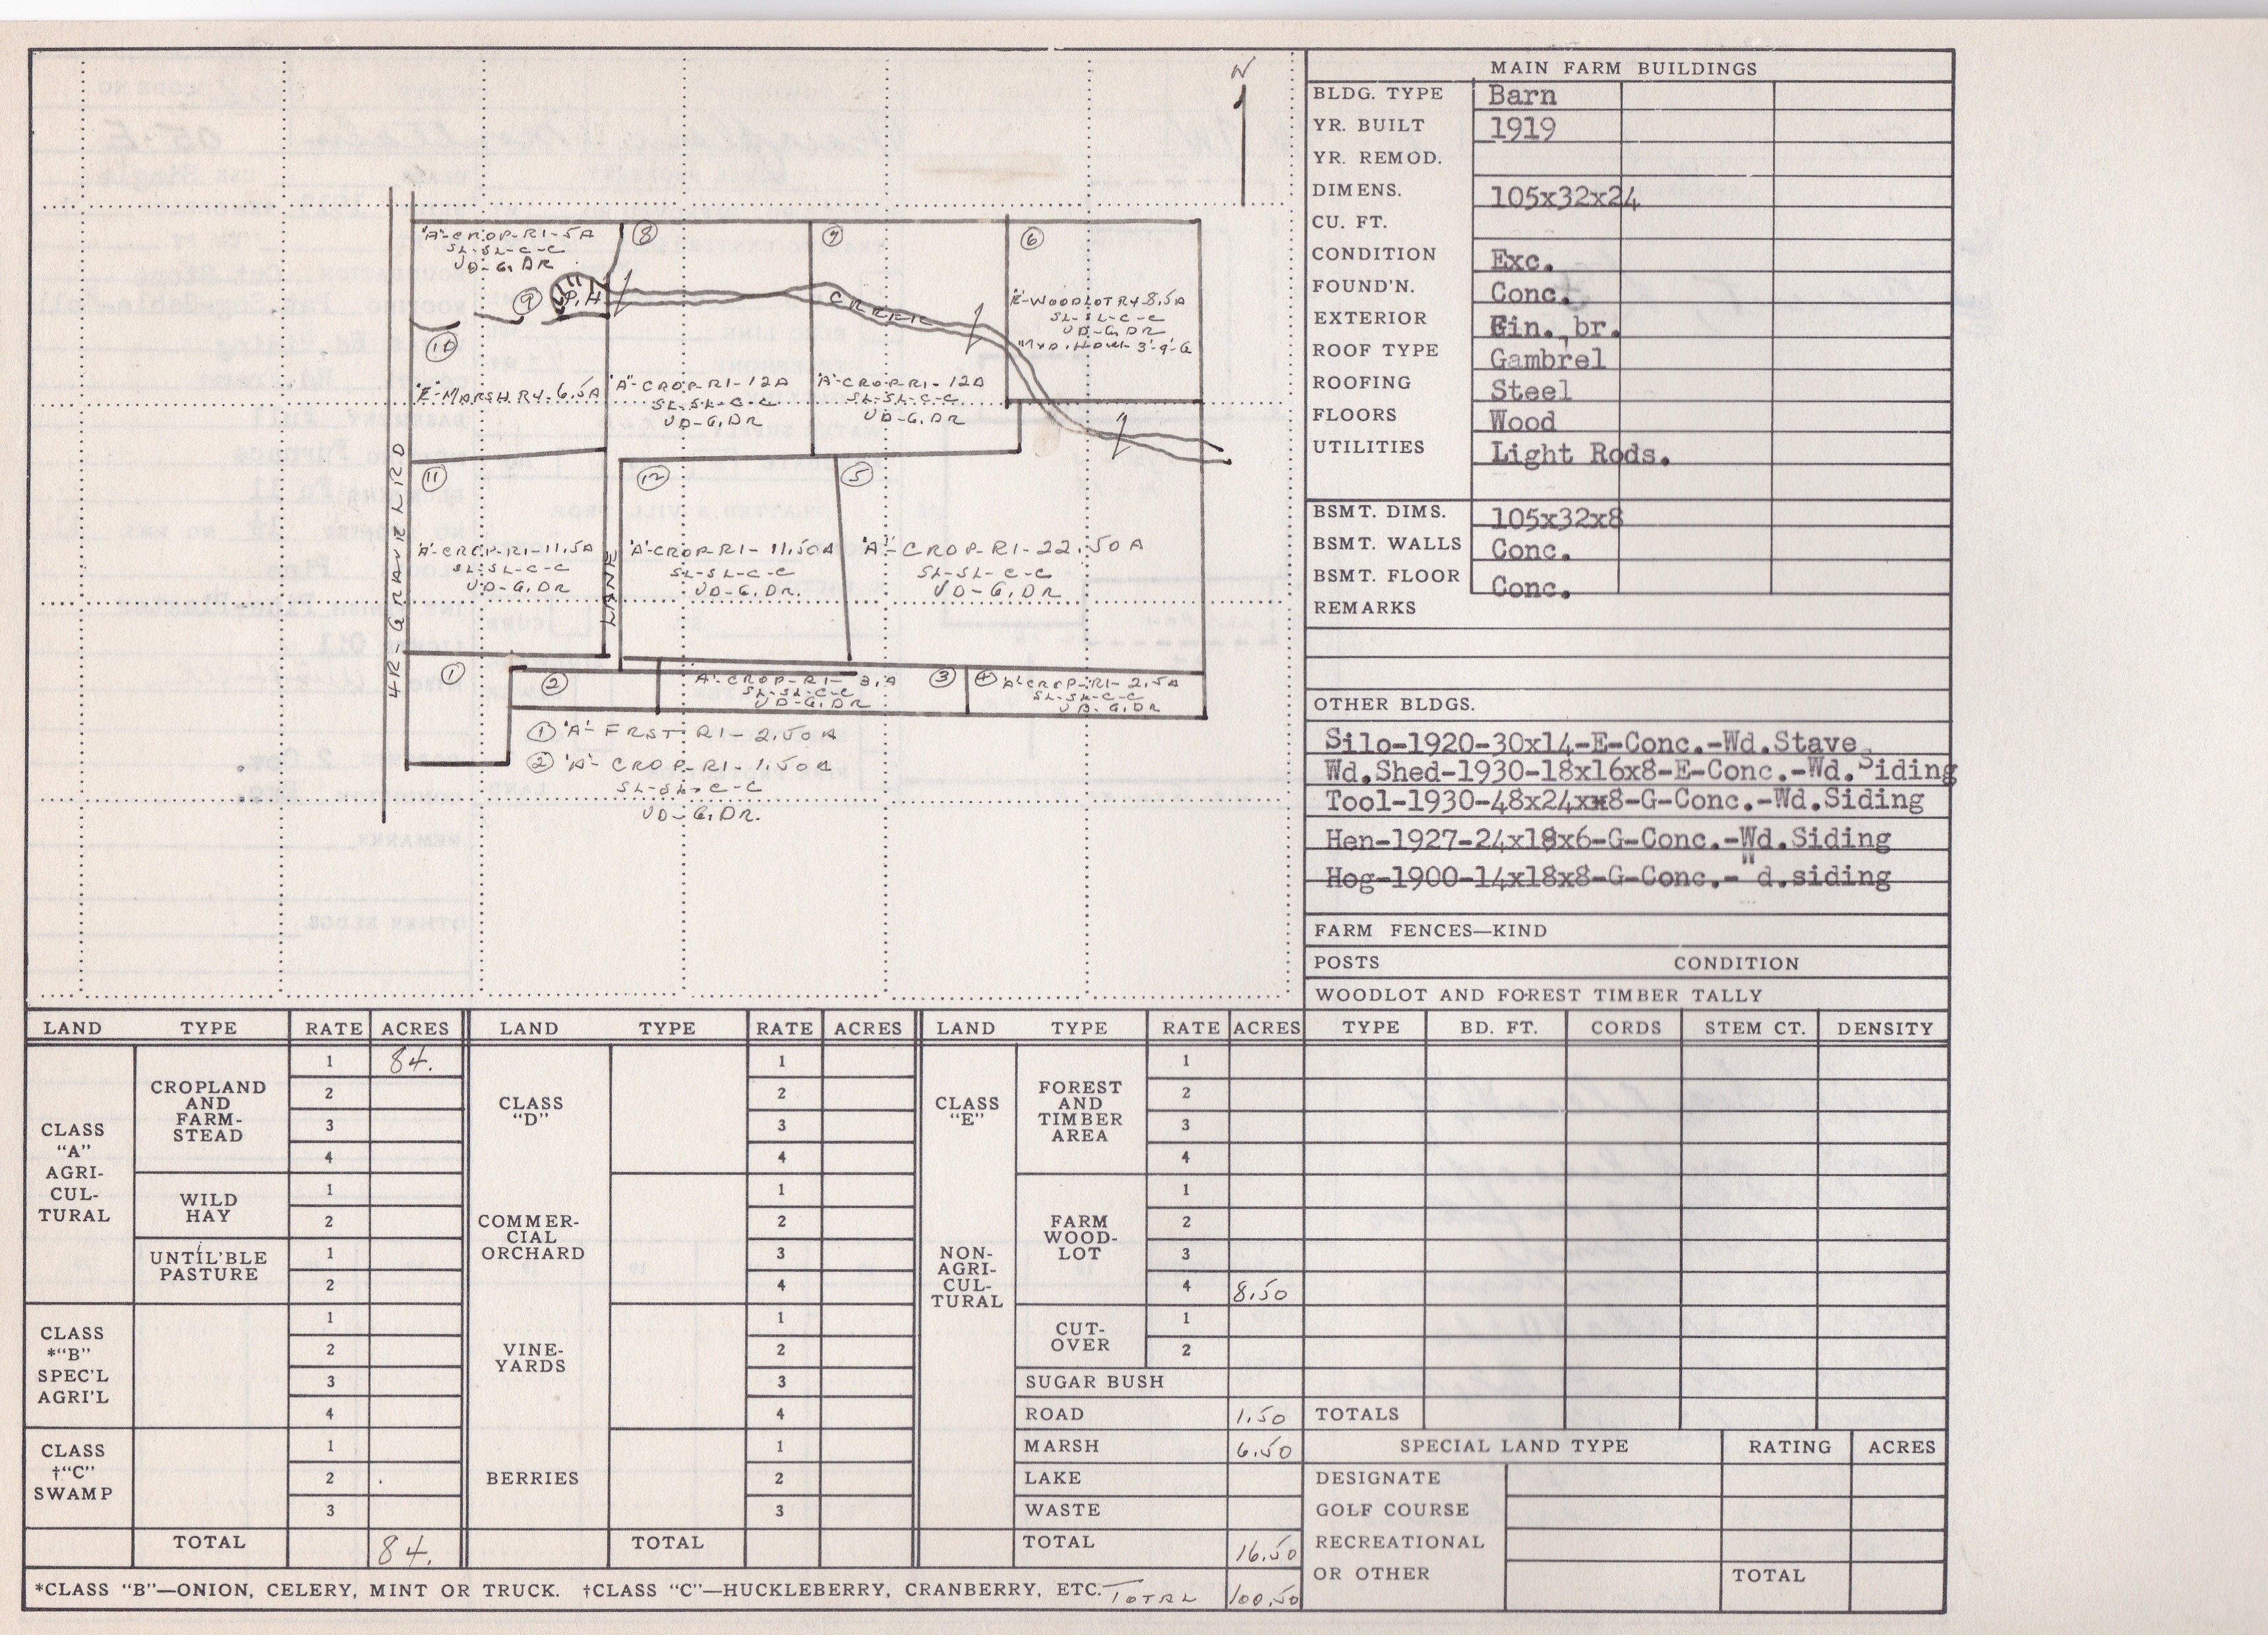 N
'A'-CROP-R1-5A
SL-SL-C-C
UD-G,DR
8
7
6
9
P,H
CREEK
'E'-WOODLOT R4-8,5A
SL-SL-C-C
UD-G,DR
10
'E'-MARSH R4-6,5A
'A'-CROP-R1-12A
SL-SL-C-C
UD-G,DR
'A'-CROP-R1-12A
SL-SL-C-C
UD-G,DR
4R-GRAVEL RD
LANE
11
'A'-CROP-R1-11,5A
SL-SL-C-C
UD-G,DR
12
'A'-CROP R1-11,50A
SL-SL-C-C
UD-G,DR.
5
'A'-CROP-R1-22.50A
SL-SL-C-C
UD-G,DR
1
2
'A'-CROP-R1-3,A
SL-SL-C-C
UD-G,DR
3
4
'A'-CROP-R1-2,5A
SL-SL-C-C
UD-G,DR
1 'A'-FRST R1-2,50A
2 'A'-CROP-R1-1,50A
SL-SL-C-C
UD-G,DR.
MAIN FARM BUILDINGS
BLDG. TYPE Barn
YR. BUILT 1919
YR. REMOD.
DIMENS. 105x32x24
CU. FT.
CONDITION Exc.
FOUND'N. Conc.
EXTERIOR Fin. br.
ROOF TYPE Gambrel
ROOFING Steel
FLOORS Wood
UTILITIES Light Rods.
BSMT. DIMS. 105x32x8
BSMT. WALLS Conc.
BSMT. FLOOR Conc.
REMARKS
OTHER BLDGS.
Silo-1920-30x14-E-Conc.-Wd.Stave
Wd.Shed-1930-18x16x8-E-Conc.-Wd.Siding
Tool-1930-48x24xx8-G-Conc.-Wd.Siding
Hen-1927-24x18x6-G-Conc.-Wd.Siding
Hog-1900-14x18x8-G-Conc.-Wd.siding
FARM FENCES—KIND
POSTS CONDITION
WOODLOT AND FOREST TIMBER TALLY
LAND TYPE RATE ACRES LAND TYPE RATE ACRES LAND TYPE RATE ACRES TYPE BD. FT. CORDS STEM CT. DENSITY
CLASS
"A"
AGRI-
CUL-
TURAL
CROPLAND
AND
FARM-
STEAD
1 84.
2
3
4
WILD
HAY
1
2
UNTIL'BLE
PASTURE
1
2
CLASS
*"B"
SPEC'L
AGRI'L
1
2
3
4
CLASS
†"C"
SWAMP
1
2
3
TOTAL 84.
CLASS
"D"
1
2
3
4
COMMER-
CIAL
ORCHARD
1
2
3
4
VINE-
YARDS
1
2
3
4
BERRIES
1
2
3
TOTAL
CLASS
"E"
NON-
AGRI-
CUL-
TURAL
FOREST
AND
TIMBER
AREA
1
2
3
4
FARM
WOOD-
LOT
1
2
3
4 8,50
CUT-
OVER
1
2
SUGAR BUSH
ROAD 1,50
MARSH 6,50
LAKE
WASTE
TOTAL 16,50
TOTALS
SPECIAL LAND TYPE RATING ACRES
DESIGNATE
GOLF COURSE
RECREATIONAL
OR OTHER TOTAL
*CLASS "B"—ONION, CELERY, MINT OR TRUCK. †CLASS "C"—HUCKLEBERRY, CRANBERRY, ETC. TOTAL 100,50